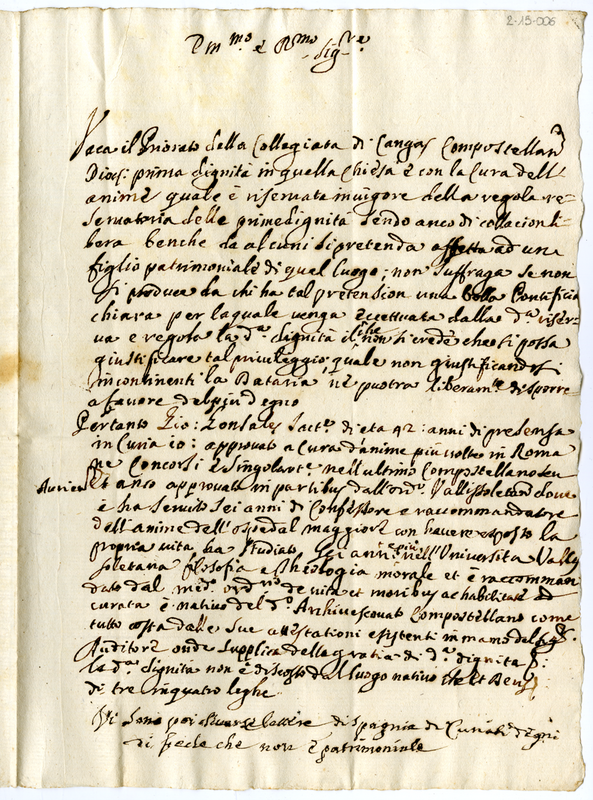 2-15-006
Em.mo e R.mo Sig.re
Vaca il Priorato della Collegiata di Cangas Compostellan
Dioci: prima dignità in quella Chiesa è con la Cura dell'
anime quale è riservata in vigore della regola re-
servatoria delle prime dignità sendo anco di collacion li-
bera benche da alcuni si pretenda affetta ad un
figlio patrimoniale di quel luogo; non suffraga se non
si produce da chi ha tal pretension una bolla Pontificia
chiara per laquale venga eccettuata dalla d.a riser-
va e regola la d.a dignità il che non si crede che si possa
giustificare tal priuileggio, quale non giustificandosi
incontinenti la Dataria, nè puotrà liberam.te disporre
a favore de più degno
Pertanto Gio: Gonsales Sact.e di età 42: anni di presensa
in Curia io: approuato a Cura d'anime più volte in Roma
ne Concorsi e singolarte nell'ultimo Compostellano seu
Aurien et anco approuato in partibus dall'ord.o Vallisoletano doue
è ha seruito sei anni di Confessore e raccommandatore
dell'anime dell'ospedal maggiore con hauere esposto la
propria vita, ha studiato sei anni e più nell'Universita Valli
soletana filosofia e theologia morale et è raccomman
dato dal med.o ord.no de vita et moribus ac habilitate ad
curata è nativo del d.o Archivescouato Compostellano come
tutto costa dalle sue attestationi esistenti in mano del Sig.r
Auditore onde supplica della gratia di d.a dignità
la d.a dignità non è discosto dal luogo nativo
di tre in quatro leghe
Vi sono poi diuerse lettere di Spagnia di Curiati degni
di fede che non è patrimoniale